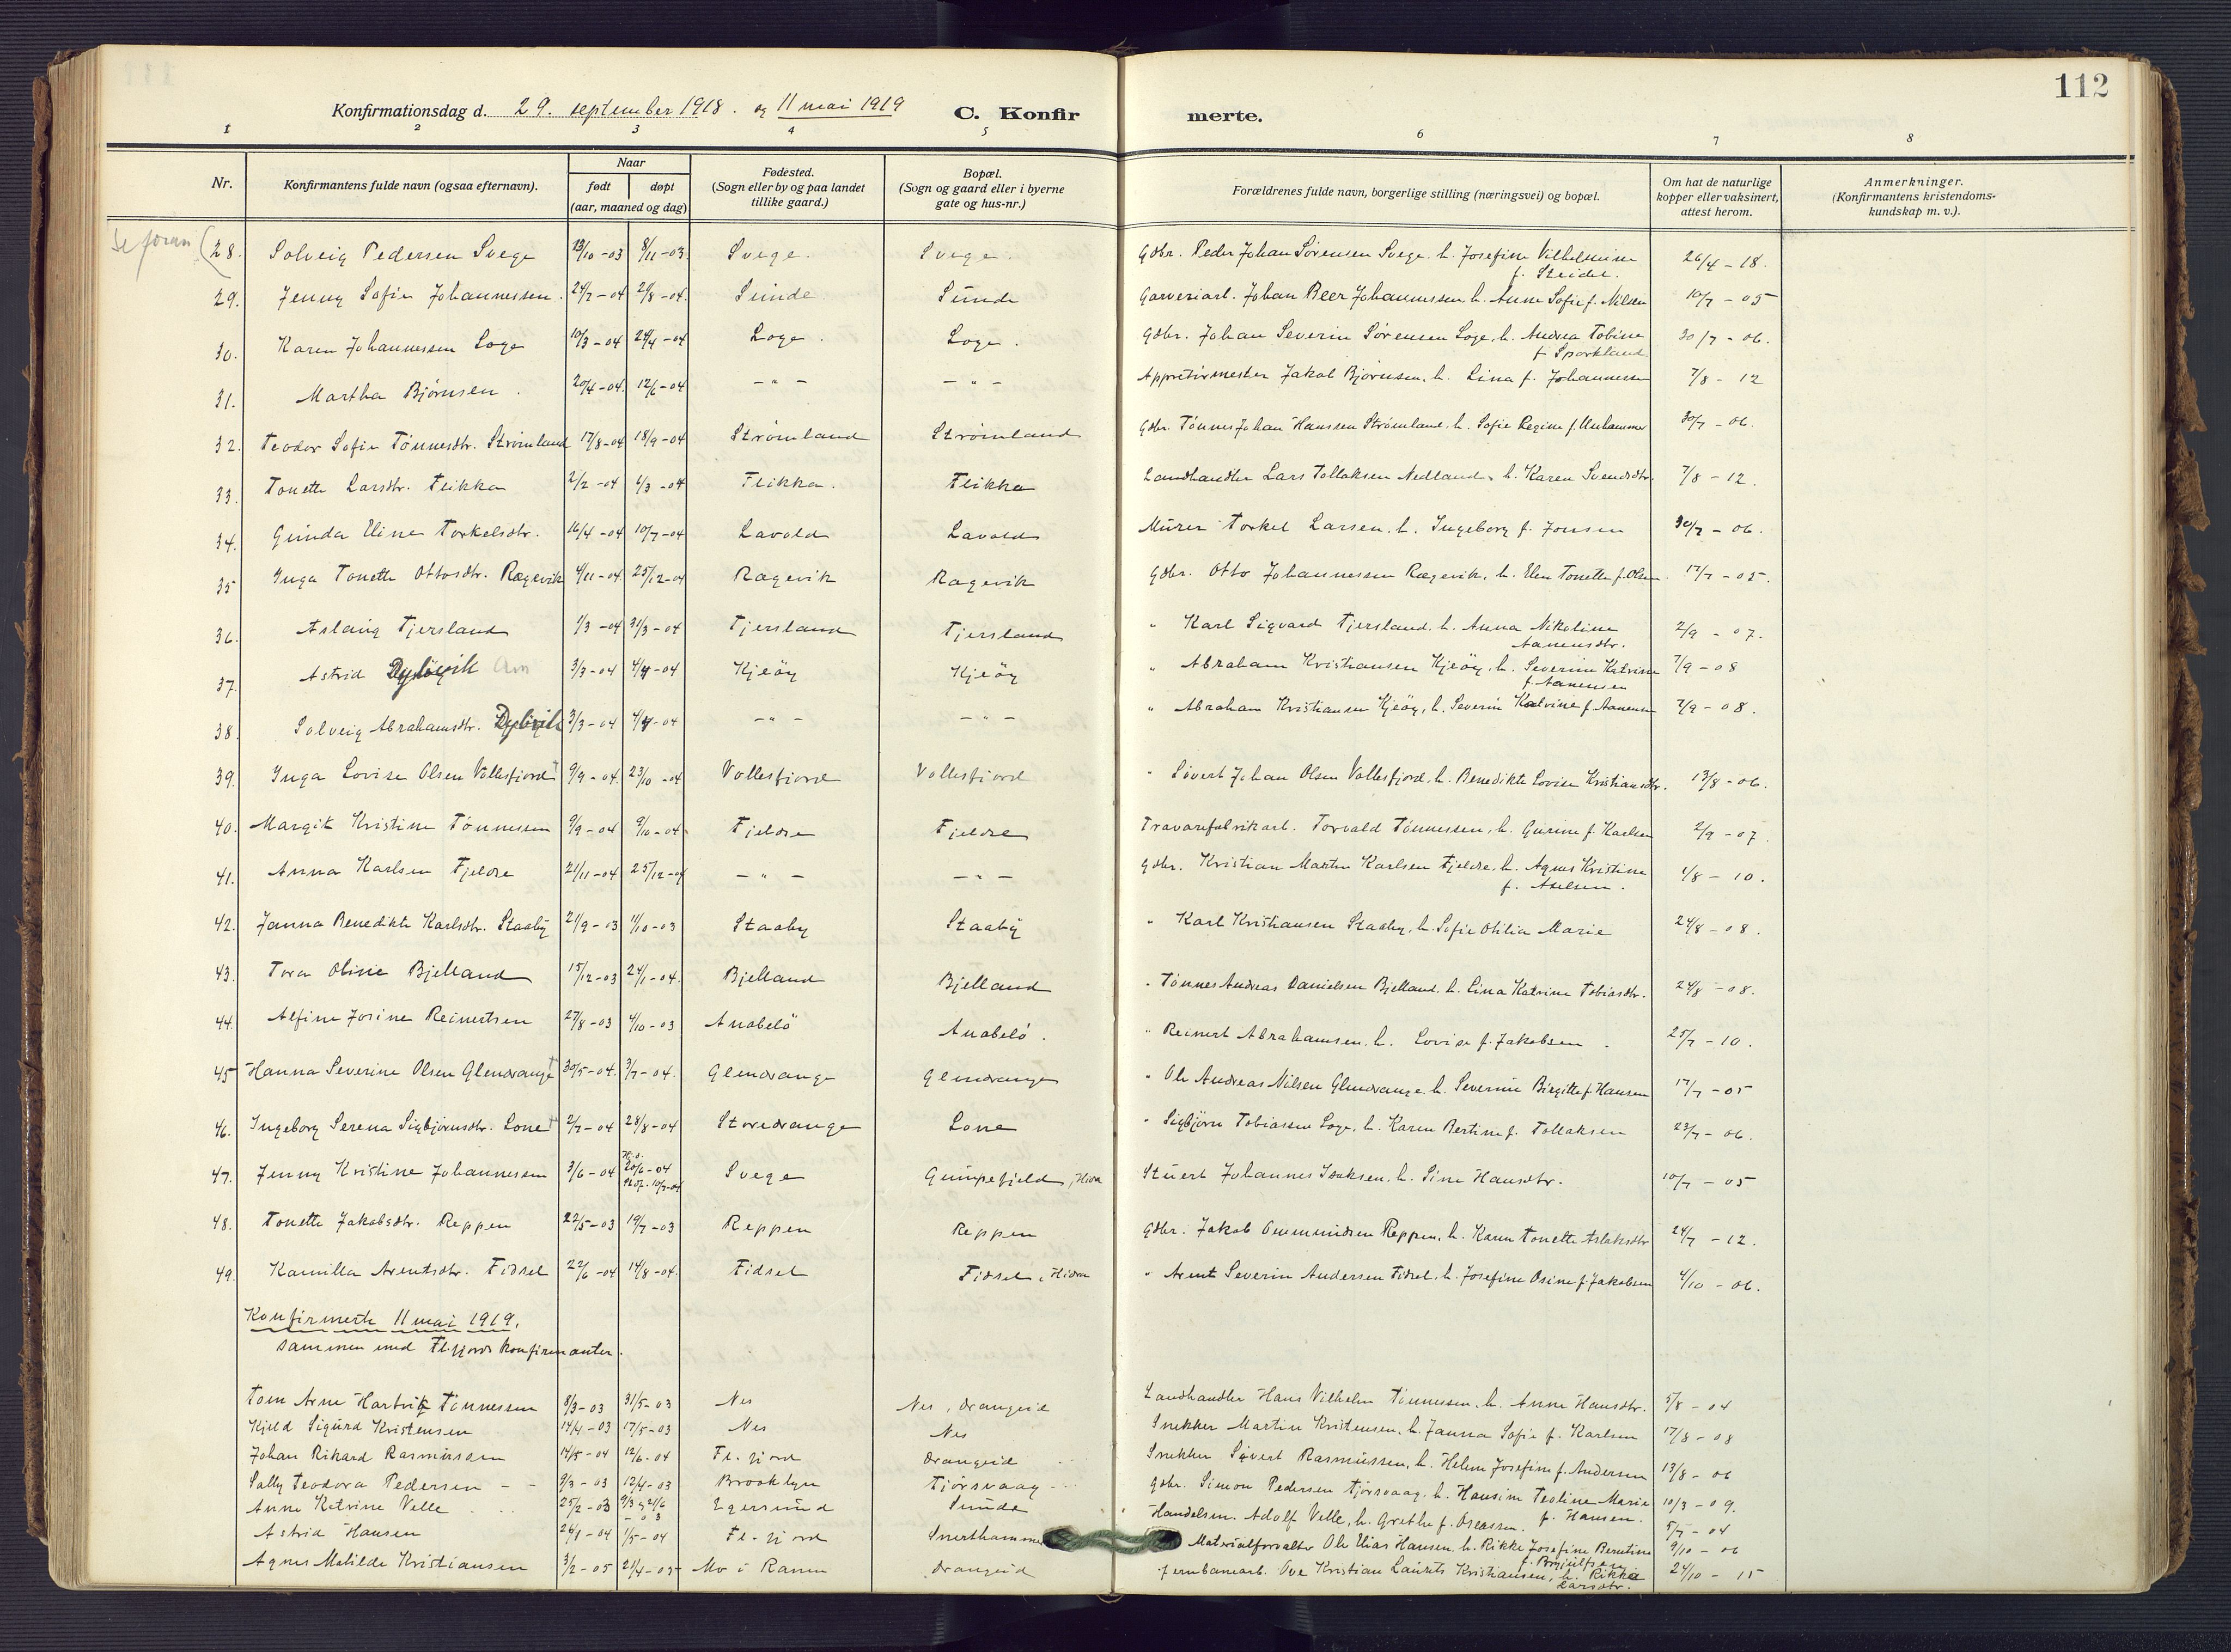 112
Konfirmationsdag d. 29. september 1918. og 11 mai 1919
C. Konfir merte.
1 2 3 4 5 6 7 8
Nr.
Konfirmantens fulde navn (ogsaa efternavn).
Naar
født døpt
(aar, maaned og dag)
Fødested.
(Sogn eller by og paa landet
tillike gaard.)
Bopæl.
(Sogn og gaard eller i byerne
gate og hus-nr.)
Forældrenes fulde navn, borgerlige stilling (næringsvei) og bopæl.
Om hat de naturlige
kopper eller vaksinert,
attest herom.
Anmerkninger.
(Konfirmantens kristendoms-
kundskap m. v.).
Se foran (28. Solveig Pedersen Svege 13/10-03 8/11-03 Svege. Svege. Gdbr. Peder Johan Sørensen Svege. h. Josefine Vilhelmine 26/4-18.
f. Steidel.
29. Jenny Sofie Johannessen. 24/7-04 21/8-04. Sunde Sunde Garveriarb. Johan Beer Johannessen, h. Anne Sofie f. Nilsen 10/7-05
30. Karen Johannessen Loge 10/3-04 24/4-04 Loge. Loge. Gdbr. Johan Severin Sørensen Loge, h. Andrea Tobine 30/7-06.
f Sparkland
31. Martha Bjørnsen. 20/4-04. 12/6-04 -"- -"- Appretúrmester Jakob Bjørnsen, h. Lina f. Johannessen 7/8-12
32. Teodor Sofie Tønnesdtr. Strømland 17/8-04 18/9-04 Strømland Strømland Gdbr. Tønnes Johan Hanssen Strømland, h. Sofie Regine f. Urehammer 30/7-06.
33. Tonette Larsdtr. Flikka 2/2-04 4/3-04 Flikka. Flikka Landhandler Lars Tollaksen Nedland, h. Karen Svendsdtr. 7/8-12.
34. Gunda Eline Torkelsdtr. 16/4-04 10/7-04 Lavold Lavold Múrer Torkel Larsen. h. Ingeborg f. Jonsen 30/7-06.
35 Inga Tonette Ottosdtr. Rægevik 4/11-04. 25/12-04 Rægevik Rægevik Gdbr. Otto Johannessen Rægevik, h. Elen Tonette f. Olsen. 12/7-05.
36. Aslaug Tjersland 1/3-04 31/3-04 Tjersland Tjersland " Karl Sigvard Tjersland. h. Anna Nikoline 2/9-07.
Aanensdtr.
37. Astrid Dybvik 3/3-04 4/4-04 Kjeöy Kjeöy " Abraham Kristiansen Kjeöy, h. Severine Katrine 7/9-08
f. Aanensen
38. Solveig Abrahamsdtr. Dybvik 3/3-04 4/4-04 -"- -"- " Abraham Kristiansen Kjeöy, h. Severin Katrine f. Aanensen 7/9-08.
39. Inga Lovise Olsen Vollesfjord 9/9-04. 23/10-04 Vollesfjord Vollesfjord " Sivert Johan Olsen Vollesfjord, h. Benedikte Lovise Kristiansdtr. 13/8-06.
40. Margit Kristine Tönnessen 9/9-04 9/10-04 Fjeldse Fjeldse Travarefabrikarb. Torvald Tönnessen, h. Gurine f. Karlsen 2/9-07.
41. Anna Karlsen Fjeldse 21/11-04 25/12-04 -"- -"- Gdbr. Kristian Martin Karlsen Fjeldse, h. Agnes Kristine 4/8-10.
f. Axelsen.
42. Janna Benedikte Karlsdtr. Staaby 21/9-03 11/10-03 Staaby Staaby " Karl Kristiansen Staaby, h. Sofie Otilia Marie 24/8-08.
43. Tora Oline Bjelland 15/12-03 24/1-04. Bjelland Bjelland " Tönnes Andreas Danielsen Bjelland. h. Lina Katrine Tobiasdtr. 24/8-08.
44. Alfine Josine Reinertsen 27/8-03 4/10-03 Anabelö Anabelö. " Reinert Abrahamsen. h. Lovise f. Jakobsen. 25/7-10.
45 Hanna Severine Olsen Glendrange 30/5-04. 3/7-04. Glendrange Glendrange " Ole Andreas Nilsen Glendrange. h. Severine Birgitte f. Hansen 17/7-05
46. Ingeborg Serena Sigbjørnsdtr. Lone 2/7-04 28/8-04 Storedrange Lone " Sigbjörn Tobiassen Loge, h. Karen Bertine f. Tollaksen 23/7-06.
47. Jenny Kristine Johannessen 3/6-04 20/6-04 10/7-04 Svege Gumpefjeld, Hidra Stúert Johannes Isaksen. h. Sine Hansdtr. 10/7-05
48. Tonette Jakobsdtr. Reppen 22/5-03 19/7-03 Reppen Reppen Gdbr. Jakob Ommundsen Reppen, h. Karen Tonette Aslaksdtr 24/7-12.
49. Kamilla Arentsdtr. Fidsel 22/6-04 14/8-04. Fidsel Fidsel, Hidra " Arent Severin Andersen Fidsel. h. Josefine Osine f. Jakobsen 4/10-06.
Konfirmerte 11 mai 1919.
sammen med Fl.fjords konfirmanter.
Tom Arne Hartvik Tönnessen 8/3-03 31/5-03 Nes Nes, Drangeid Landhandler Hans Vilhelm Tönnessen. h. Anne Hansdtr. 5/8-04
Kjeld Sigurd Kristensen 14/4-03 17/5-03 Nes Nes Snekker Martin Kristensen. h. Janna Sofie f. Karlsen 17/8-08
Johan Rikard Rasmússen 14/5-04 12/6-04 Fl.fjord Drangeid Snekker Sivert Rasmússen, h. Helene Josefine f. Andersen 13/8-06
Sally Teodora Pedersen - - 9/3-03 12/4-03 Brooklyn Tjörsvaag Gdbr. Simon Pedersen Tjörsvaag. h. Hansine Teoline Marie 10/3-09.
f. Hansen.
Anne Katrine Velle 25/2-03 Egersúnd Sunde Handelsm. Adolf Velle, h. Grethe f. Oseassen. 5/7-04
Astrid Hansen 24/1-04 1/5-04 Fl.fjord Materialforvalter Ole Elias Hansen. h. Rikke Josefine Berntine 9/10-06
f. Brynjúlfsen
Agnes Matilde Kristiansen 3/2-05 21/4-05 Mo i Ranen Drangeid Jernbanearb. Ove Kristian Laurits Kristiansen, h. Rikke 24/10-15
Larsdtr.